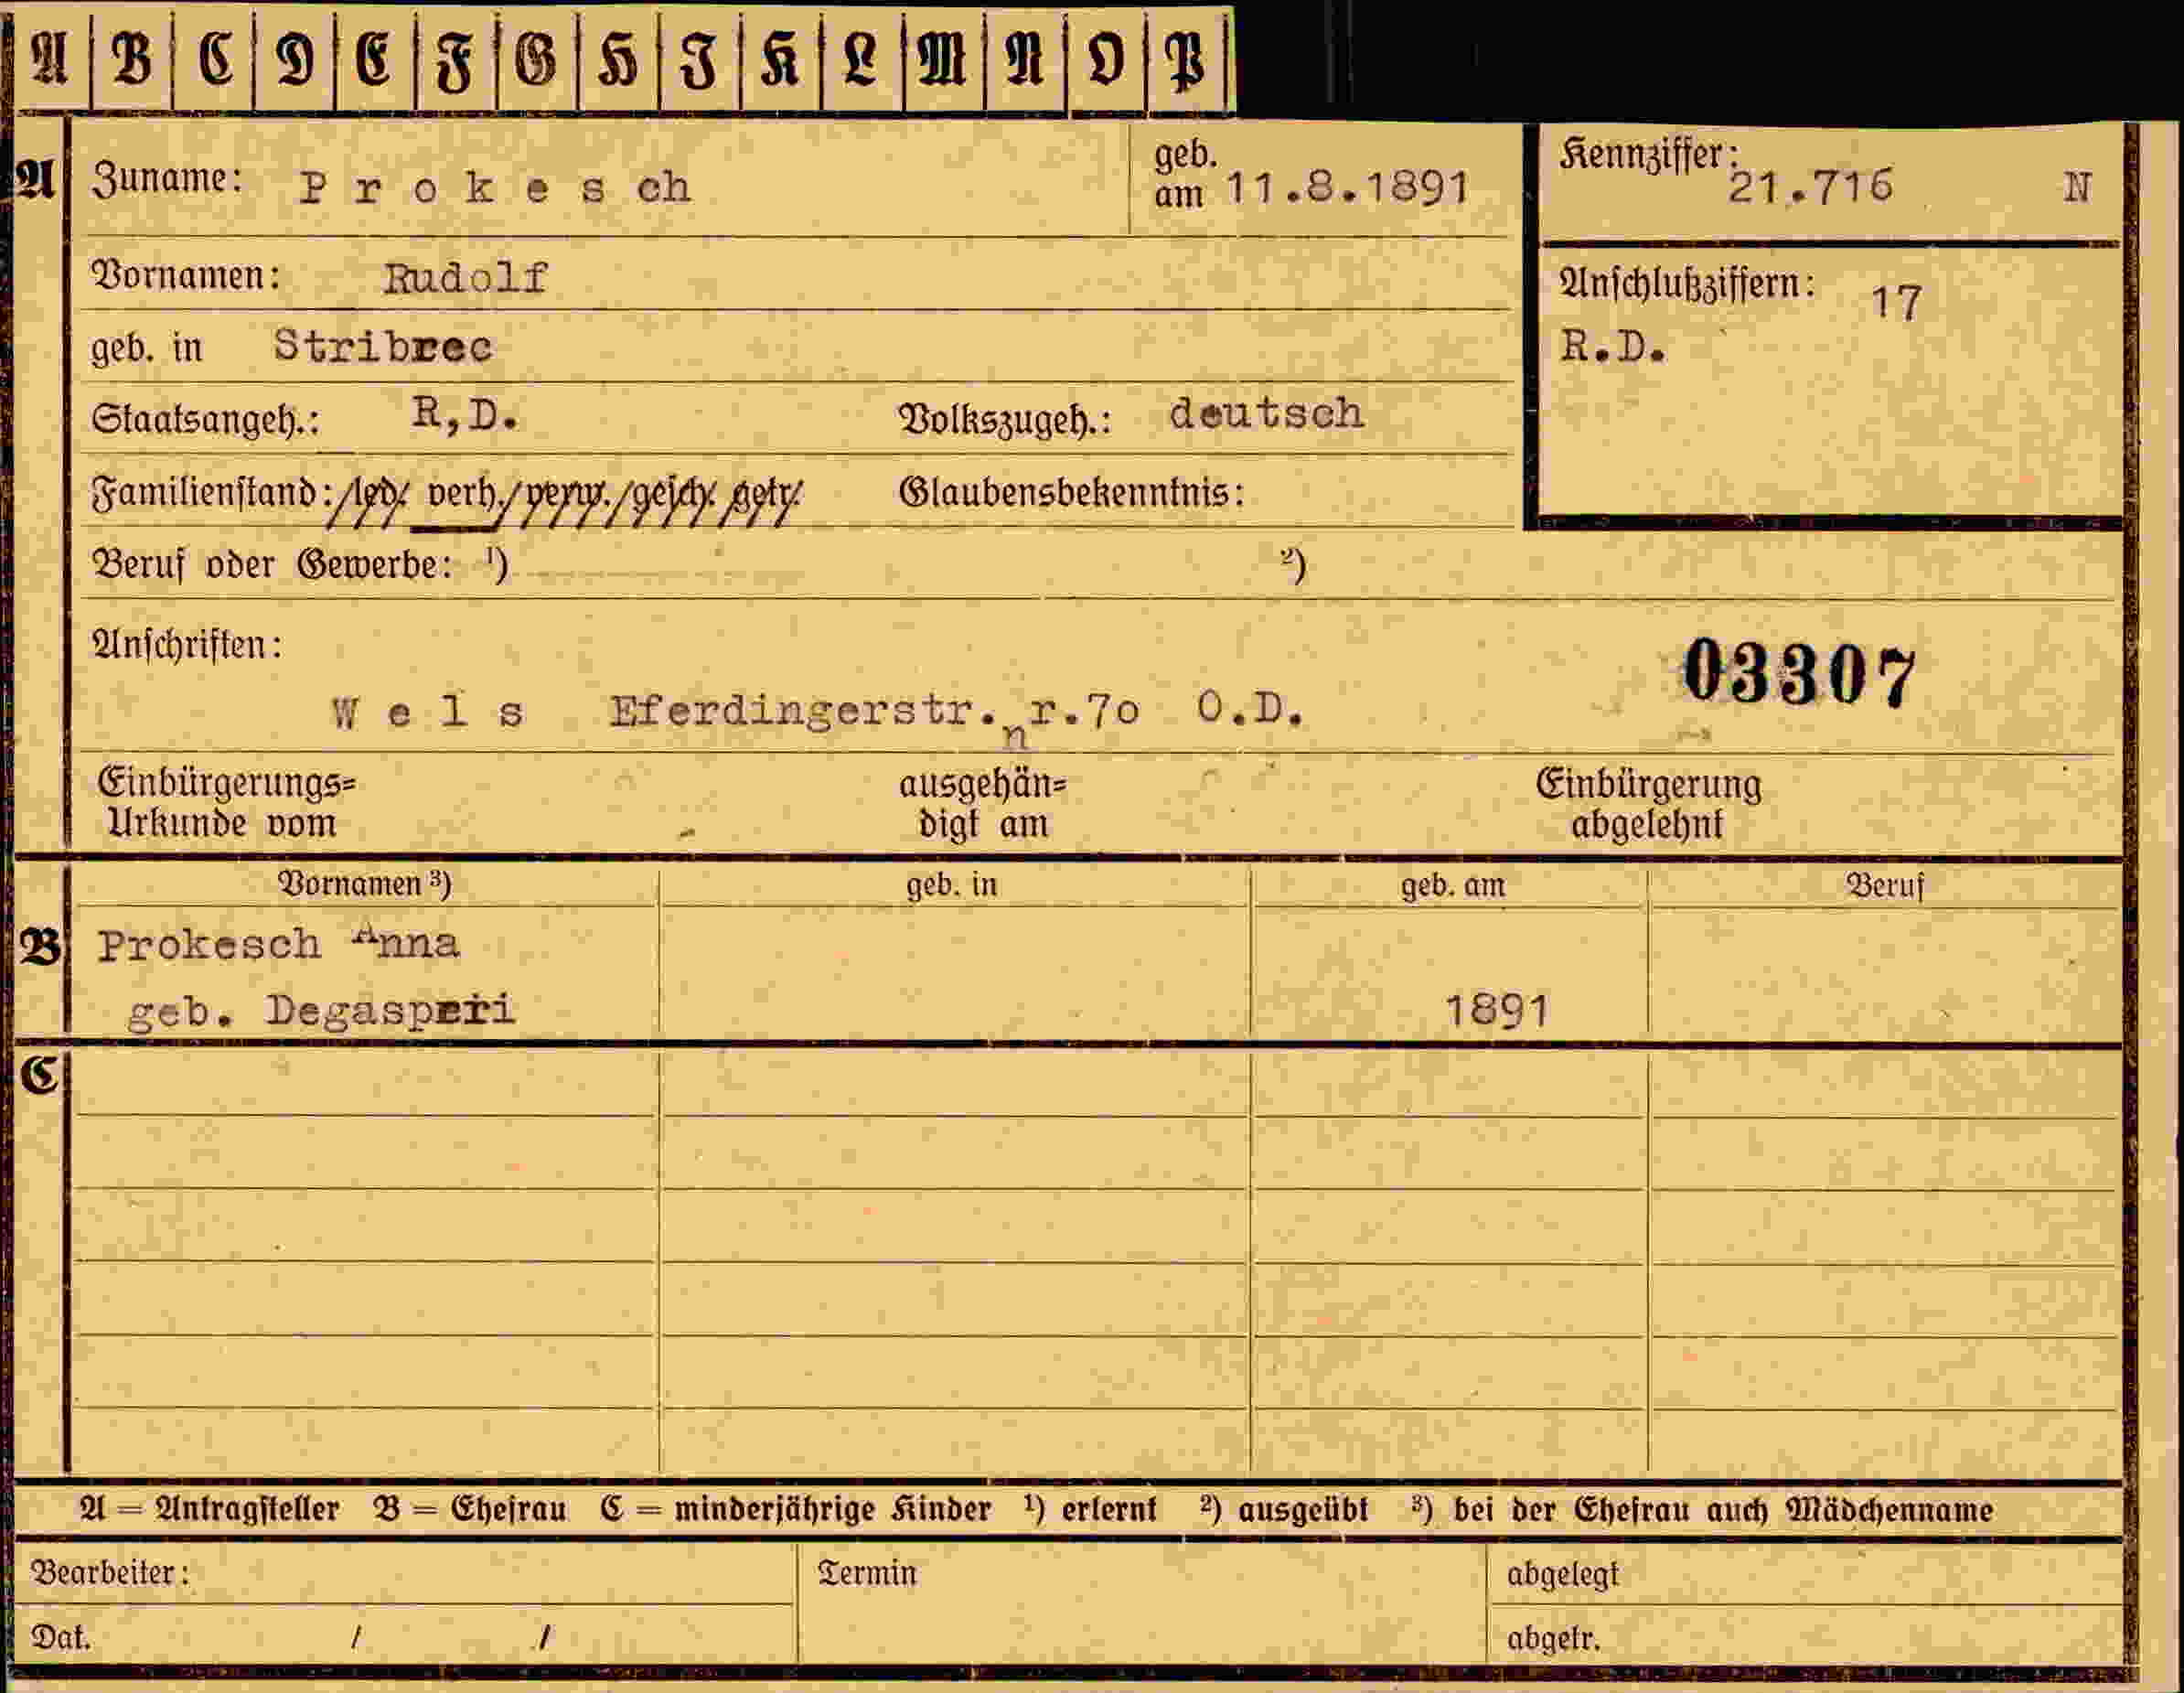 A B C D E F G H I K L M N O P
A Zuname: Prokesch geb. am 11.8.1891 Kennziffer: 21.716 N
Vornamen: Rudolf Anschlußziffern: 17
geb. in Stribrec R.D.
Staatsangeh.: R,D. Volkszugeh.: deutsch
Familienstand: led. verh. verw. gesch. getr. Glaubensbekenntnis:
Beruf oder Gewerbe: ¹) ²)
Anschriften:
03307
Wels Eferdingerstr.nr.7o O.D.
Einbürgerungs= Urkunde vom ausgehän= digt am Einbürgerung abgelehnt
Vornamen ³) geb. in geb. am Beruf
B Prokesch Anna
geb. Degasperi 1891
C
A = Antragsteller B = Ehefrau C = minderjährige Kinder ¹) erlernt ²) ausgeübt ³) bei der Ehefrau auch Mädchenname
Bearbeiter: Termin abgelegt
Dat. / / abgetr.